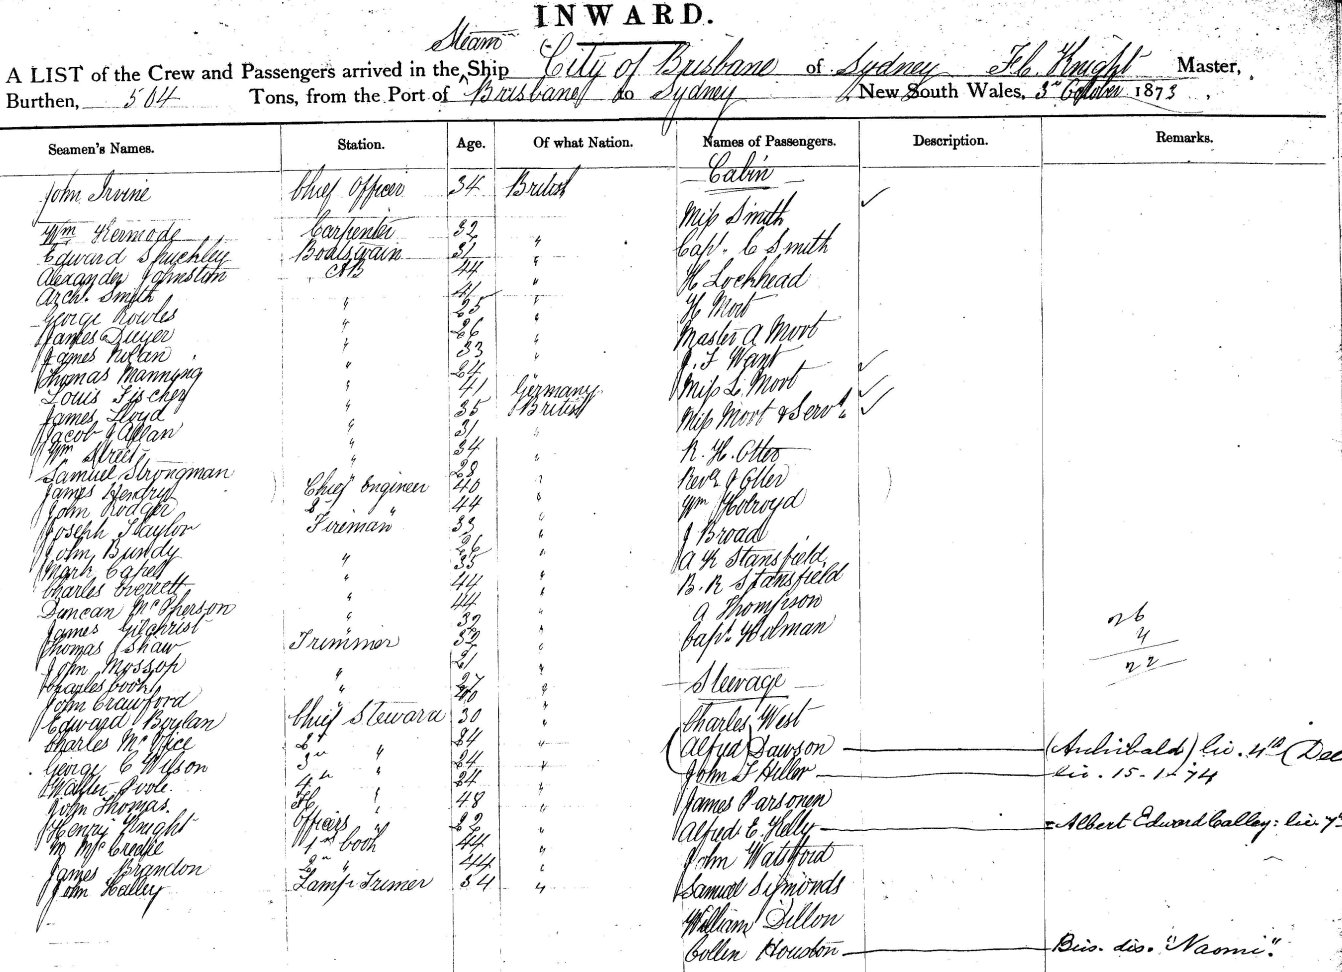 INWARD.
Steam
A LIST of the Crew and Passengers arrived in the Ship City of Brisbane of Sydney Knight Master,
Burthen, 504 Tons, from the Port of Brisbane to Sydney New South Wales, 3rd October 1873,
Seamen's Names. Station. Age. Of what Nation. Names of Passengers. Description. Remarks.
Cabin
John Irvine Chief Officer 34 British
Miss Smith
Wm Kermode Carpenter 32 "
Capt. C Smith
Edward Shuckley Boatswain 31 "
Alexander Johnston AB 44 "
H Lockhead
Arch. Smith " 41 "
George Rowles " 25 "
H Mort
James Dwyer " 26 "
Master A Mort
James Nolan " 33 "
J. F Want
Thomas Manning " 24
Louis Fischer " 41 Germany
Miss L. Mort
James Lloyd " 35 British
Miss Mort & Servt.
Jacob J Allan " 31 "
Wm Street " 34 "
R. H. Otter
Samuel Strongman " 28
James Hendry Chief Engineer 40 "
Revd J Otter
John Rodger 2nd " 44 "
Wm Holroyd
Joseph Taylor Fireman 33 "
J Broad
John Bundy 26
Mark Capel " 35 "
A K Stansfield
Charles Everrett " 44 "
B. R Stansfield
Duncan McPherson " 44 "
A Thompson
James Gilchrist " 32 "
Capt. Holman
Thomas Shaw Trimmer 32 "
26
4
22
John Mossop " 21 "
Steerage
Charles Cook " 27
John Crawford 40 "
Edward Boylan Chief Steward 30 "
Charles West
Charles McVice 2nd " 24 "
(Alfred) Dawson (Archibald) lic. 4th (Dec
George C Wilson 3rd " 24 "
John T Hiller lic. 15-1-74
Walter Poole 4th " 24
John Thomas. 48 "
James Parsonen
Henry Knight Officers " 22 "
Alfred E. Kelly = Albert Edward Calley: lic. 7
M McCrease 1st Cook 44 "
John Watsford
James Brandon 2nd " 44 "
John Halley Lamp Trimer 54 "
Samuel Symonds
William Dillon
Collen Houston Bris. dis. "Naomi".